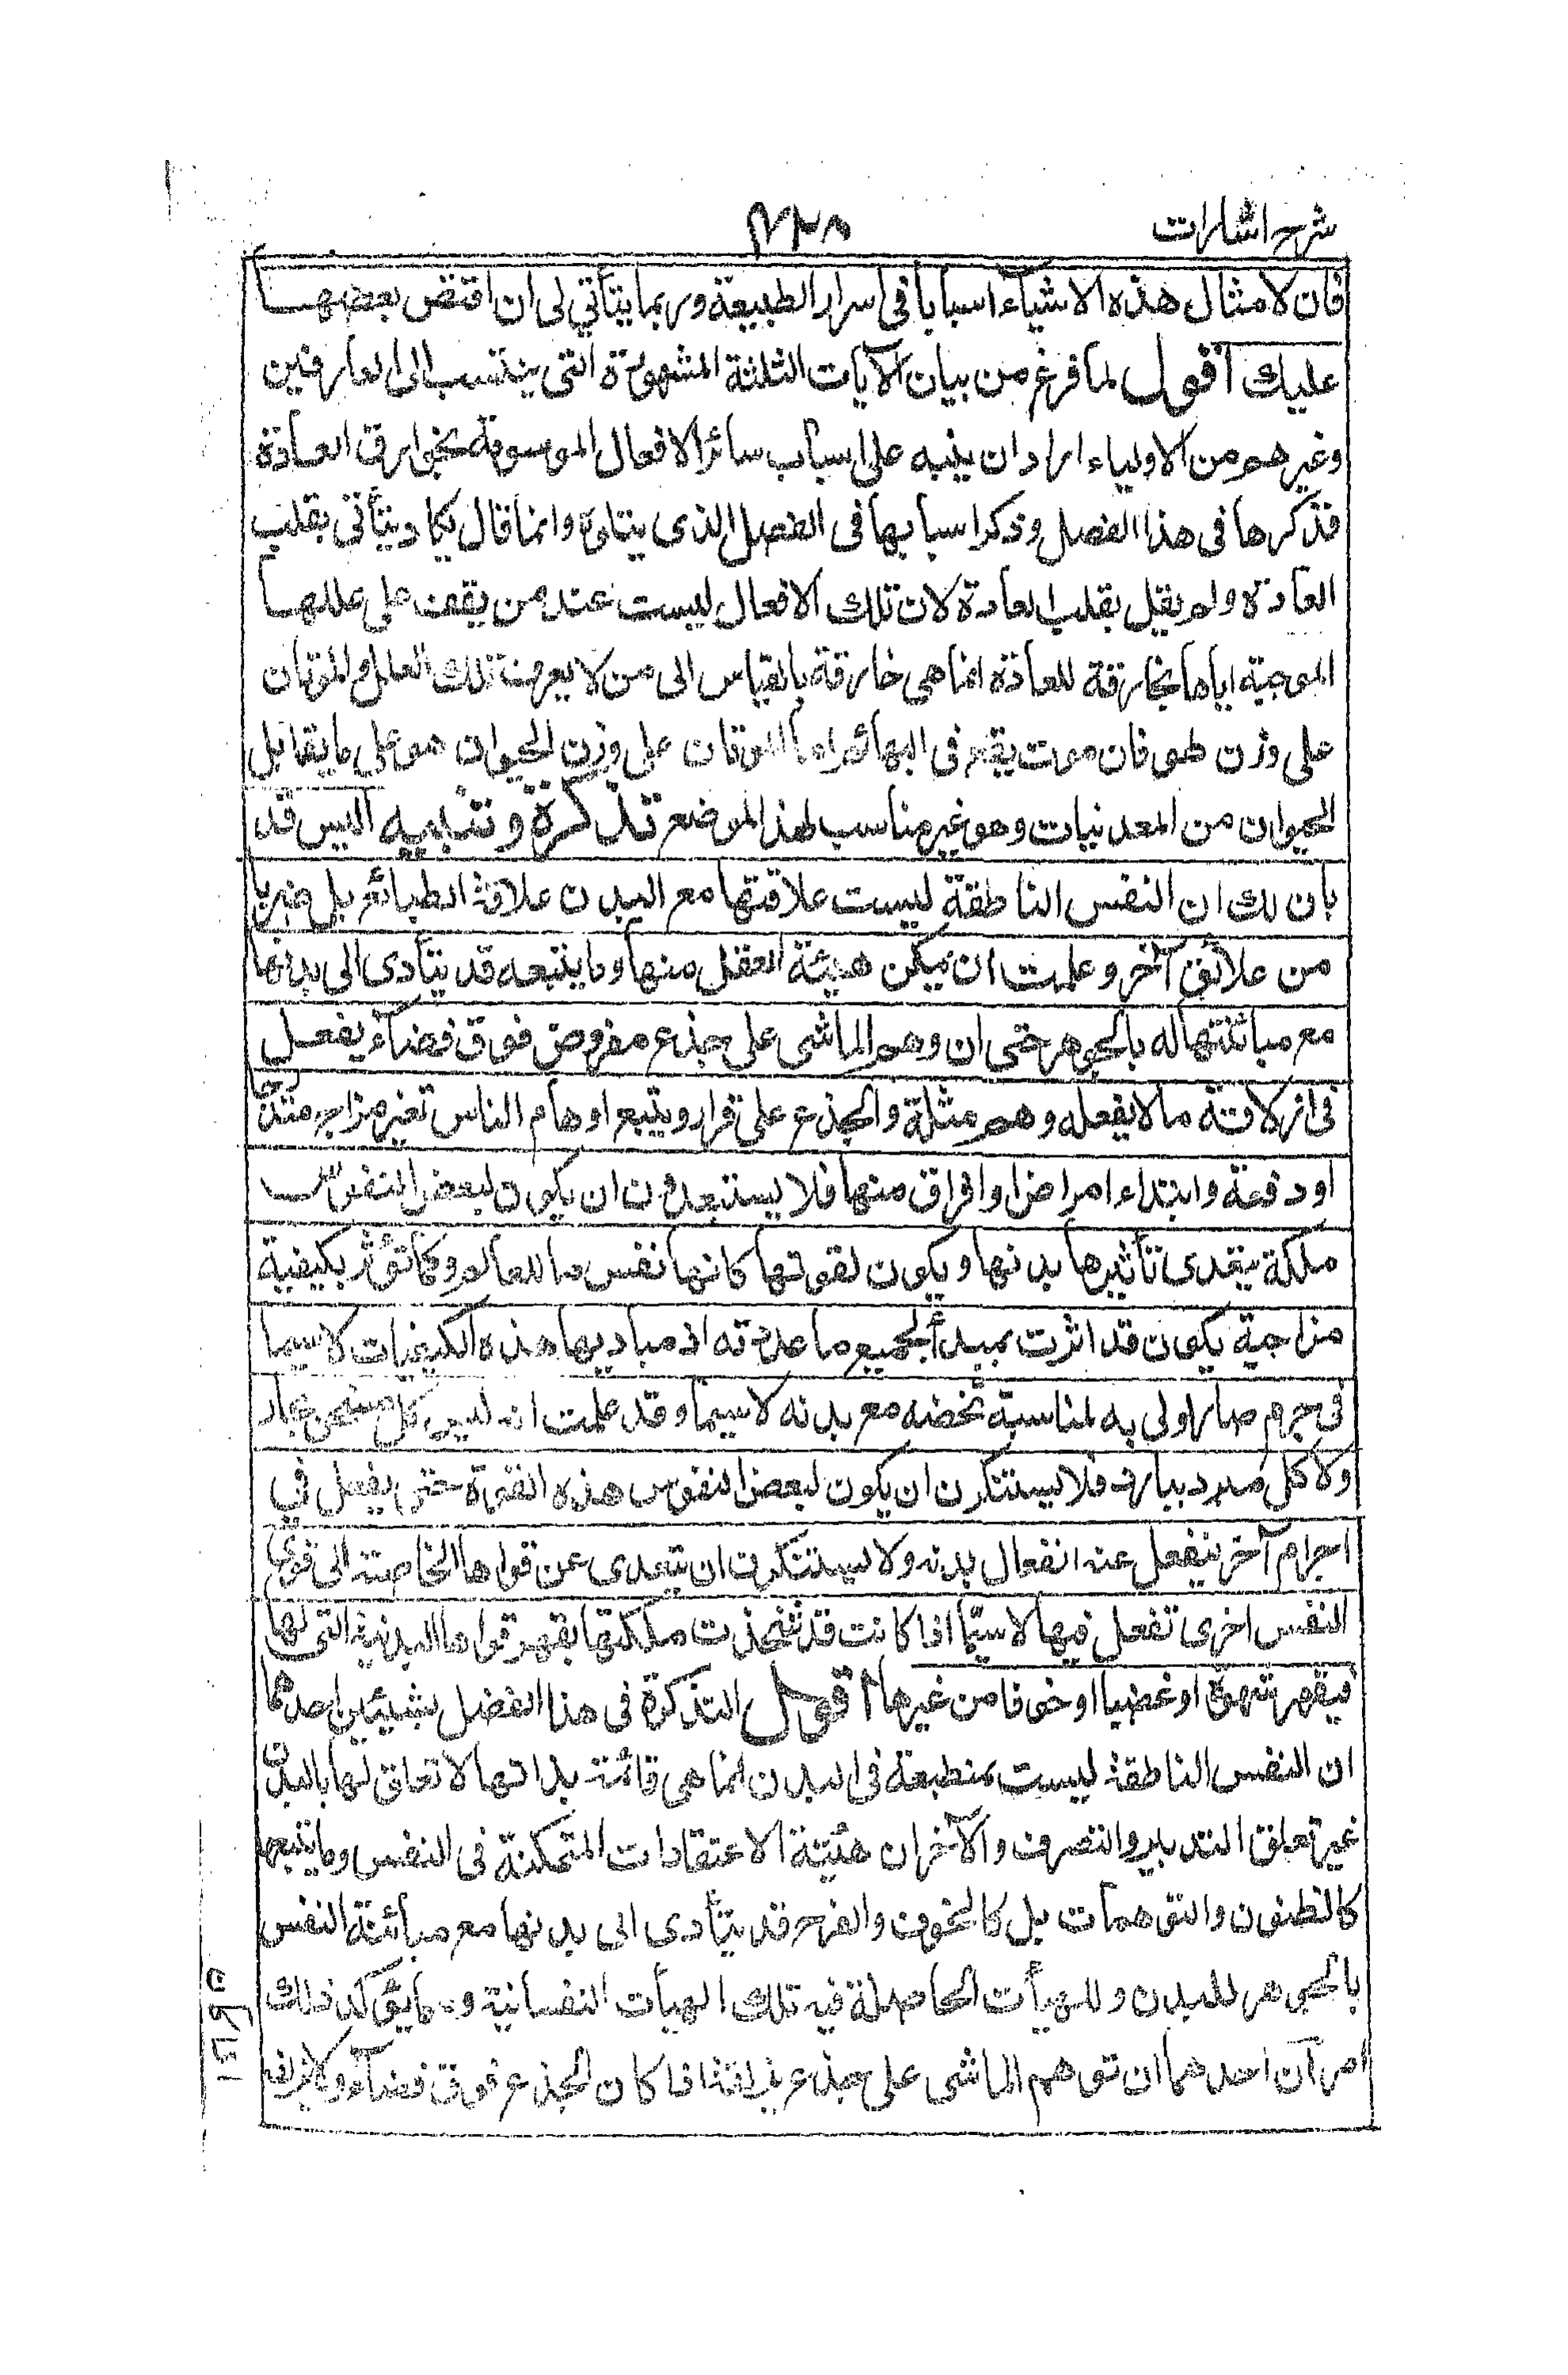 شرح اشارات
فان لامثال هذه الاشيآء اسبابا فى اسرار الطبيعة وربما يتأتي لى ان اقتض بعضها
عليك اقول لما فرغ من بيان الآيات الثلثة المشهورة التى ينتسب الى العارفين
وغيرهم من الاولياء اراد ان ينبه على اسباب سائر الافعال الموسومة بخوارق العادة
فذكرها فى هذا الفصل وذكر اسبابها فى الفصل الذى يتلوه وانما قال يكاد يتأتى بقلب
العادة ولم يقل بقلب العادة لان تلك الافعال ليست عند من يقف على عللها
الموجبة اياها بخارقة للعادة انما هى خارقة بالقياس الى من لا يعرف تلك العلل والموتان
على وزن طوفان موت يقع فى البهائم واما الموتان على وزن الحيوان هو على ما يقابل
الحيوان من المعدنيات وهو غير مناسب لهذا الموضع تذكرة وتنبيه اليس قد
بان لك ان النفس الناطقة ليست علاقتها مع البدن علاقة انطباع بل ضربا
من علائق آخر وعلمت ان تمكن هيئة العقل منها وما يتبعه قد يتأدى الى بدنها
مع مبائنتها له بالجوهر حتى ان وهم الماشى على جذع معروض فوق فضاء يفعل
فى ازلاقه ما لا يفعله وهم مثله والجذع على قرار ويتبع اوهام الناس تغير مزاج مدة
او دفعة وابتداء امراض او افراق منها فلا يستبعدون ان يكون لبعض النفوس
ملكة يتعدى تأثيرها بدنها ويكون لقوتها كانها نفس ما للعالم وكما تؤثر بكيفية
مزاجية يكون قد اثرت بمبدأ لجميع ما عددته اذ مباديها هذه الكيفيات لا سيما
فى جرم صار اولى به لمناسبة تخصه مع بدنه لا سيما وقد علمت انه ليس كل مسخن بحار
ولا كل مبرد ببارد فلا يستنكرن ان يكون لبعض النفوس هذه القوة حتى يفعل في
اجرام آخر ينفعل عنه انفعال بدنه ولا يستنكرن ان يتعدى عن قواها الخاصة الى قوى
النفس اخرى تفعل فيها لا سيما اذا كانت قد شحذت ملكتها بقهر قواها البدنية التى لها
فيقهر شهوة او غضبا او خوفا من غيرها اقول التذكرة فى هذا الفصل بشيئين احدهما
ان النفس الناطقة ليست بمنطبعة فى البدن انما هى قائمة بذاتها لا تعلق لها بالبدن
غير تعلق التدبير والتصرف والآخر ان هيئة الاعتقادات المتمكنة فى النفس وما يتبعها
كالظنون والتوهمات بل كالخوف والفرح قد يتأدى الى بدنها مع مبائنة النفس
بالجوهر للبدن وللهيأت الحاصلة فيه تلك الهيأت النفسانية ومما يؤكد ذلك
امرآن احدهما ان توهم الماشى على جذع يزلقه اذا كان الجذع فوق فضآء ولا يزلقه